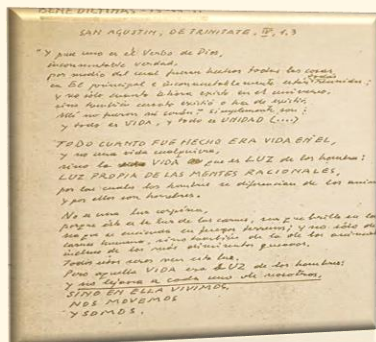 SAN AGUSTIN, DE TRINITATE, IV, 1,3
"Y pues uno es el Verbo de Dios,
inconmutable verdad,
por medio del cual fueron hechas todas las cosas,
en Él principal e inconmutablemente están todas reunidas;
y no sólo cuanto ahora existe en el universo,
sino también cuanto existió o ha de existir.
Allí no fueron ni serán: simplemente son;
y todo es VIDA, y todo es UNIDAD (....)
TODO CUANTO FUE HECHO ERA VIDA EN EL,
y no una vida cualquiera,
sino la VIDA que es LUZ de los hombres:
LUZ PROPIA DE LAS MENTES RACIONALES,
por las cuales los hombres se diferencian de los
y por ello son hombres.
No una luz corpórea,
porque ésta es la luz de los carnes, sea que brille en
sea que se encienda en fuegos terrenos; y no sólo de
carnes humanas, sino también de la de los animales
incluso de los más diminutos gusanos.
Todos estos seres ven esta luz.
Pero aquella VIDA era LUZ de los hombres;
y no lejana a cada uno de nosotros,
SINO EN ELLA VIVIMOS,
NOS MOVEMOS
Y SOMOS.